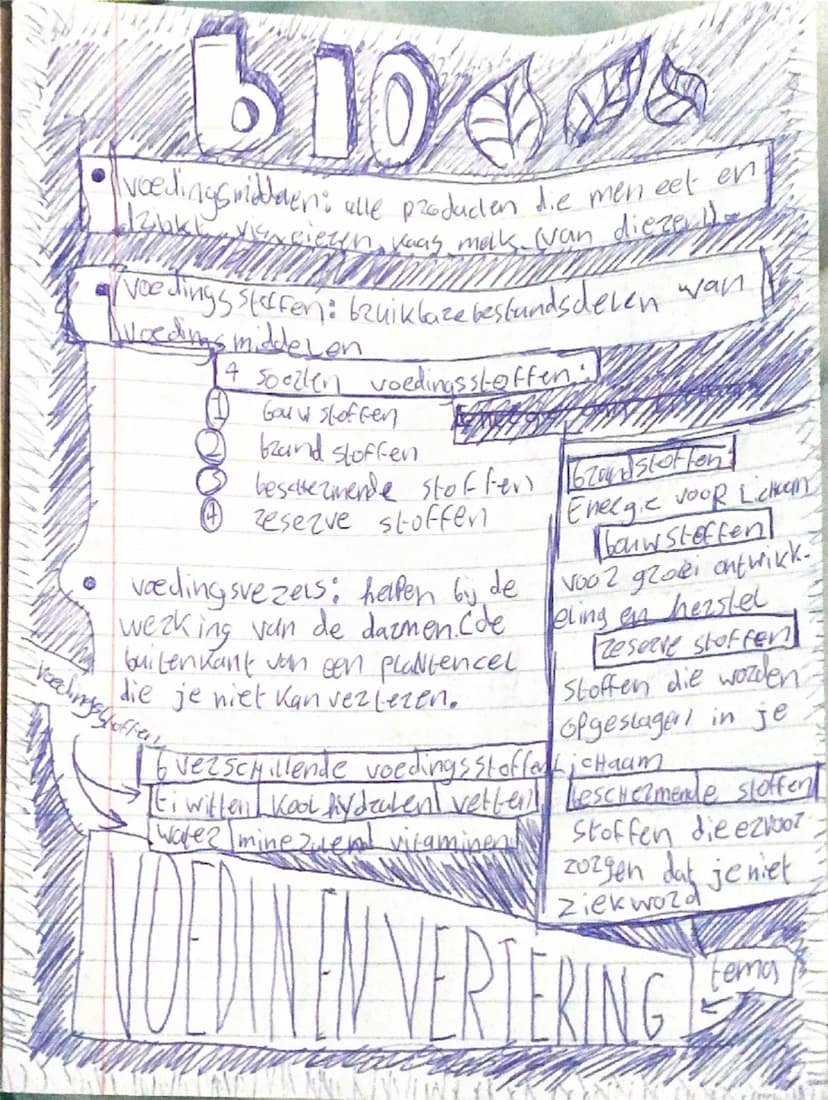 bIO
• voedingsmiddelen: alle producten die men eet en
drinkt. kaas melk (van dieren).
• voedingsstoffen: bruikbare bestandsdelen van
voedingsmiddelen
4 soorten voedingsstoffen:
1 bouwstoffen
2 brand stoffen
3 beschermende stoffen
4 reserve stoffen
• voedingsvezels: helpen bij de
werking van de darmen. (de
buitenkant van een plantencel
die je niet kan verteren.
voedingsstoffen
6 verschillende voedingsstoffen
Eiwitten koolhydraten vetten
water mineralen vitaminen
brandstoffen:
Energie voor Lichaam
bouwstoffen
voor groei ontwikk-
eling en herstel
reserve stoffen
stoffen die worden
opgeslagen in je
Lichaam
beschermende stoffen
stoffen die ervoor
zorgen dat je niet
ziek word
VOEDIN EN VERTERING
tema